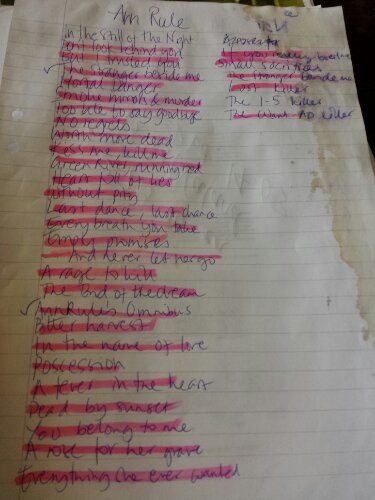 Ann Rule
In the Still of the Night
Dont look behind you
But I trusted you
The Stranger beside me
Mortal Danger
Smoke, Mirrors & murder
Too late to say goodbye
No regrets
Worth more dead
Kiss me, kill me
Green River, running red
Heart full of lies
Without pity
Last dance, last chance
Every breath you take
Empty promises
And never let her go
A rage to kill
The End of the dream
Ann Rule's Omnibus
Bitter harvest
In the name of love
Possession
A fever in the heart
Dead by sunset
You belong to me
A rose for her grave
Everything she ever wanted
If you really loved me
Small sacrifices
The Stranger beside me
Lust killer
The I-5 killer
The Want Ad killer